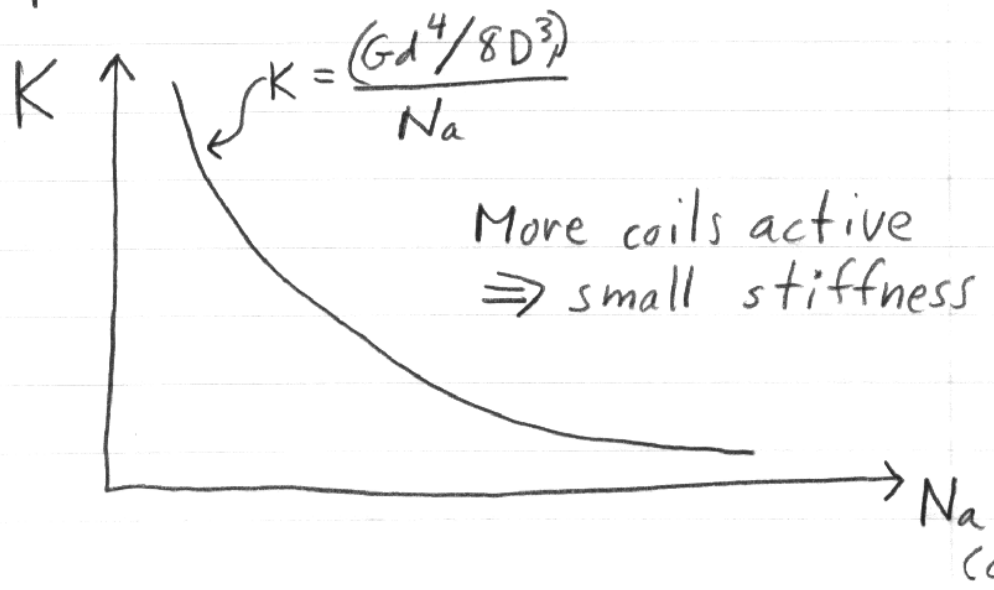 K
K = (Gd⁴/8D³)
Na
More coils active
⇒ small stiffness
Na